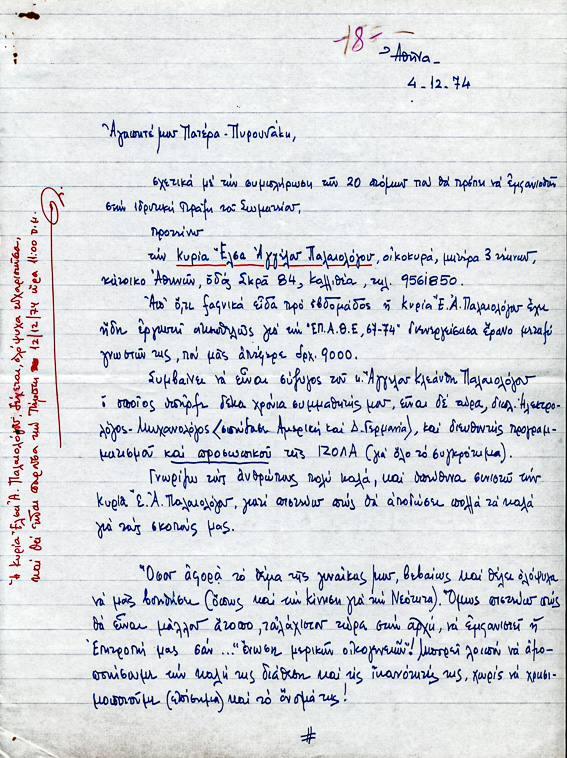 -18-
Ἀθήνα -
4-12-74
Ἀγαπητέ μου Πατέρα-Πυρουνάκη,
σχετικά μέ τήν συμπλήρωση τῶν 20 ἀτόμων πού θά πρέπει νά ἐμφανισθοῦν
στήν ἱδρυτική Πράξη τοῦ Σωματείου,
προτείνω
τήν Κυρία Ἔλσα Ἀγγέλου Παλαιολόγου, οἰκοκυρά, μητέρα 3 τέκνων,
κάτοικο Ἀθηνῶν, ὁδός Σκρᾶ 84, Καλλιθέα, τηλ. 9561850.
Ἀπ' ὅτι ξαφνικά εἶδα πρό ἑβδομάδος ἡ Κυρία Ἐ.Ἀ. Παλαιολόγου ἔχει
ἤδη ἐργαστῆ γιά τήν "ΕΠ.Α.Θ.Ε, 67-74" διενεργήσασα ἔρανο μεταξύ
γνωστῶν της, πού μᾶς ἀπέφερε δρχ. 9000.
Συμβαίνει νά εἶναι σύζυγος τοῦ κ. Ἀγγέλου Κλεάνθη Παλαιολόγου
ὁ ὁποῖος ὑπῆρξε δέκα χρόνια συμμαθητής μου, εἶναι δέ τώρα, διπλ. Ἠλεκτρο-
λόγος-Μηχανολόγος (σπούδασε Ἀμερική καί Δ. Γερμανία), καί διευθυντής προγραμ-
ματισμοῦ καί προσωπικοῦ τῆς ΙΖΟΛΑ (γιά ὅλο τό συγκρότημα).
Γνωρίζω τούς ἀνθρώπους πολύ καλά, καί ὑπεύθυνα συνιστῶ τήν
Κυρία Ἐ.Ἀ. Παλαιολόγου, γιατί πιστεύω πώς θά ἀποδώσει πολλά τά καλά
γιά τούς σκοπούς μας.
Ὅσον ἀφορᾶ τό θέμα τῆς γυναίκας μου, βεβαίως καί θέλει ὁλόψυχα
νά μᾶς βοηθήσει (ὅπως καί τήν Κίνηση γιά τήν Νεότητα). Ὅμως πιστεύω πώς
θά εἶναι μᾶλλον ἄτοπο, τοὐλάχιστον τώρα στήν ἀρχή, νά ἐμφανιστεῖ ἡ
Ἐπιτροπή μας σάν ..." ἕνωση μερικῶν οἰκογενειῶν"! Μπορεῖ λοιπόν νά ἀξιο-
ποιήσωμε τήν καλή της διάθεση καί τίς ἱκανότητές της, χωρίς νά χρησι-
μοποιοῦμε (ἐπίσημα) καί τό ὄνομά της!
#
Ἡ Κυρία Ἔλσα Ἀ. Παλαιολόγου, δέχεται, ὁλόψυχα εὐχαριστοῦσα,
καί θά εἶναι παροῦσα τήν Πέμπτη 12/12/74 ὥρα 11:00 π.μ.